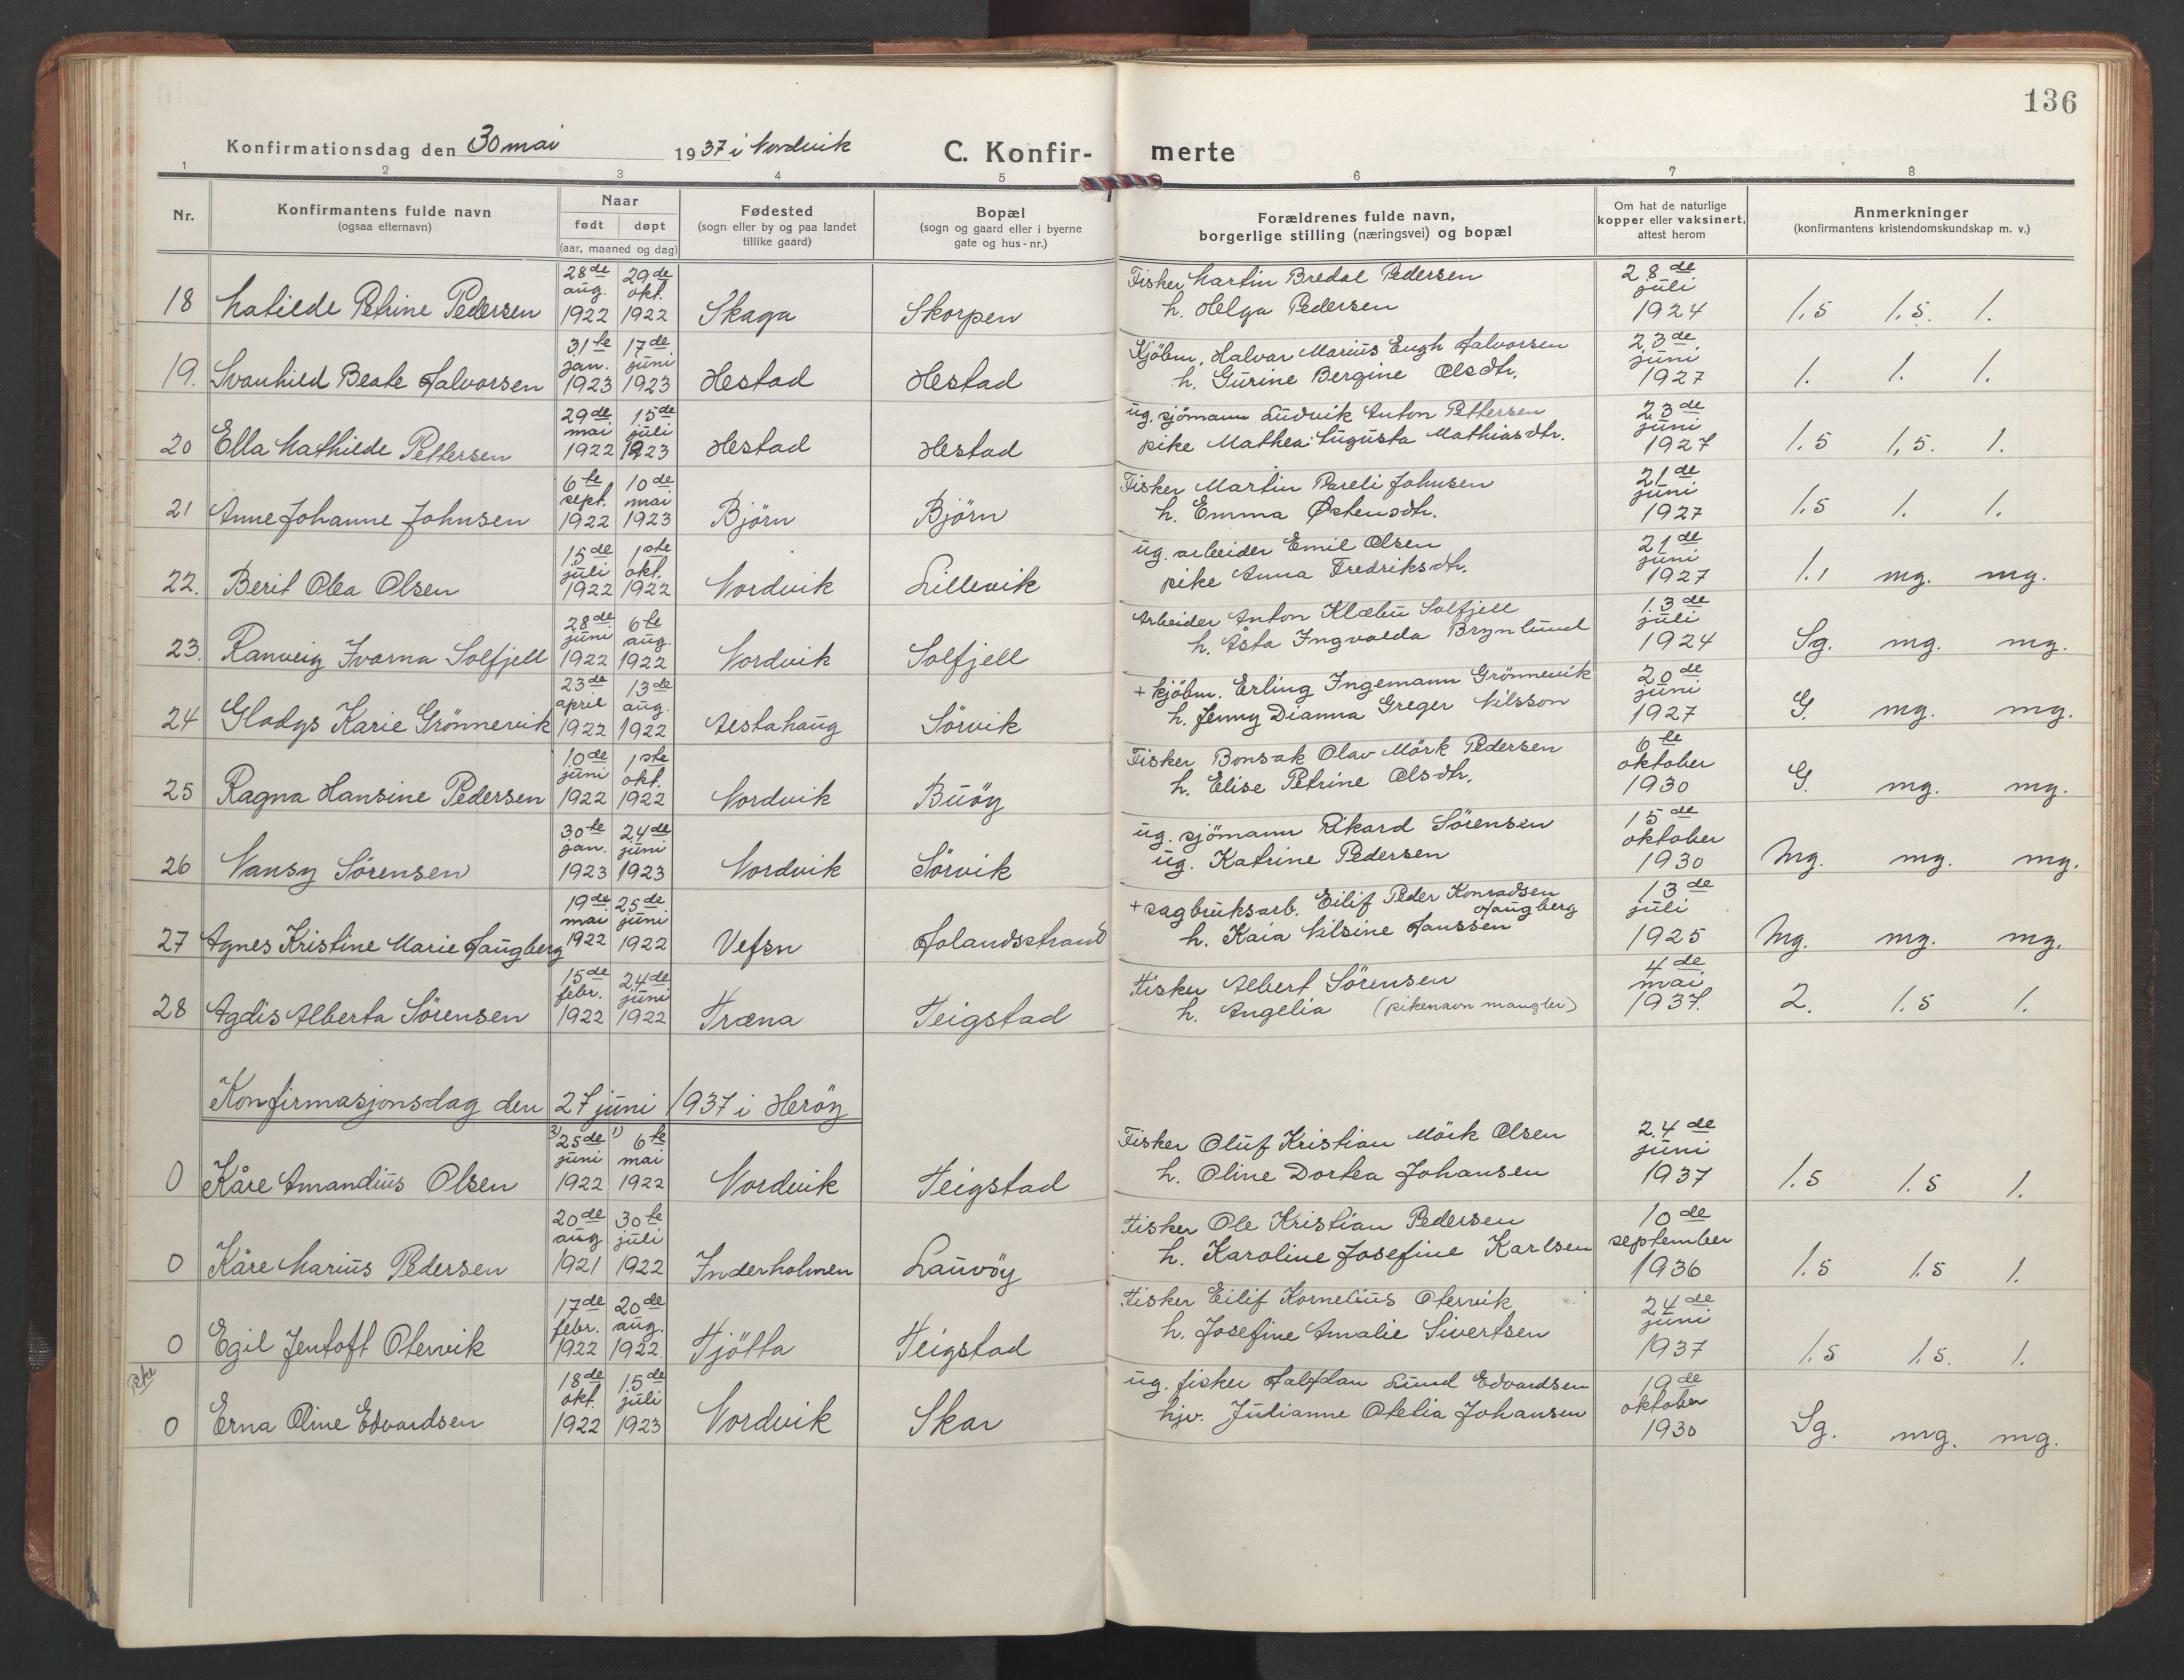 136
Konfirmationsdag den 30 mai 1937 i Nordvik C. Konfirmerte
1 2 3 4 5 6 7 8
Nr. Konfirmantens fulde navn (ogsaa efternavn) Naar født døpt (aar, maaned og dag) Fødested (sogn eller by og paa landet tillike gaard) Bopæl (sogn og gaard eller i byerne gate og hus-nr.) Forældrenes fulde navn, borgerlige stilling (næringsvei) og bopæl Om hat de naturlige kopper eller vaksinert, attest herom Anmerkninger (konfirmantens kristendomskundskap m. v.)
18 Matilde Petrine Pedersen 28de aug. 1922 29de okt. 1922 Skaga Skorpen Fisker Martin Bredal Pedersen h. Helga Pedersen 28de juli 1924 1.5 1.5. 1.
19. Svanhild Beate Halvorsen 31te jan. 1923 17de juni 1923 Hestad Hestad Kjöbm. Halvar Marius Eugh Halvorsen h. Gurine Bergine Olsdtr. 23de juni 1927 1. 1. 1.
20 Ella Mathilde Pettersen 29de mai 1922 15de juli 1923 Hestad Hestad ug. sjömann Ludvik Anton Pettersen pike Mathea Augusta Mathiasdtr. 23de juni 1927 1.5 1,5. 1.
21 Anne Johanne Johnsen 6te sept. 1922 10de mai 1923 Björn Björn Fisker Martin Pareli Johnsen h. Emma Østensdtr. 21de juni 1927 1.5 1. 1.
22. Berit Olea Olsen 15de juli 1922 1ste okt. 1922 Nordvik Lillevik ug. arbeider Emil Olsen pike Anna Fredriksdtr. 21de juni 1927 1.1 mg. mg.
23. Ranveig Ivarna Solfjell 28de juni 1922 6te aug. 1922 Nordvik Solfjell Arbeider Anton Klæbu Solfjell h. Åsta Ingvalda Brynlund 13de juli 1924 Sg. mg. mg.
24 Gladys Karie Grönnevik 23de april 1922 13de aug. 1922 Alstahaug Sörvik + kjöbm. Erling Ingemann Grönnevik h. Jenny Dianna Greger Nilsson 20de juni 1927 G. mg. mg.
25 Ragna Hansine Pedersen 10de juni 1922 1ste okt. 1922 Nordvik Buöy Fisker Bonsak Olav Mörk Pedersen h. Elise Petrine Olsdtr. 6te oktober 1930 G. mg. mg.
26 Nansy Sörensen 30te jan. 1923 24de juni 1923 Nordvik Sörvik ug. sjömann Rikard Sörensen ug. Katrine Pedersen 15de oktober 1930 Mg. mg. mg.
27 Agnes Kristine Marie Haugberg 19de mai 1922 25de juni 1922 Vefsn Holandsstrand + sagbruksarb. Eilif Peder Konradsen Haugberg h. Kaia Nilsine Hanssen 13de juli 1925 Mg. mg. mg.
28 Agdis Alberta Sörensen 15de febr. 1922 24de juni 1922 Træna Teigstad Fisker Albert Sörensen h. Angelia (pikenavn mangler) 4de mai 1937. 2. 1.5 1.
Konfirmasjonsdag den 27 juni 1937 i Heröy
0 Kåre Amandius Olsen 2) 25de juni 1922 1) 6te mai 1922 Nordvik Teigstad Fisker Oluf Kristian Mörk Olsen h. Oline Dortea Johansen 24de juni 1937 1.5 1.5 1.
0 Kåre Marius Pedersen 20de aug 1921 30te juli 1922 Inderholmen Lauvöy Fisker Ole Kristian Pedersen h. Karoline Josefine Karlsen 10de september 1936 1.5 1.5 1.
0 Egil Jentoft Otervik 17de febr. 1922 20de aug. 1922. Tjötta Teigstad Fisker Eilif Kornelius Otervik h. Josefine Amalie Sivertsen 24de juni 1937 1.5 1.5. 1.
0 Erna Oline Edvardsen 18de okt. 1922 15de juli 1923 Nordvik Skar ug. fisker Halfdan Lund Edvardsen hjv. Julianne Otelia Johansen 19de oktober 1930 Sg. mg. mg.